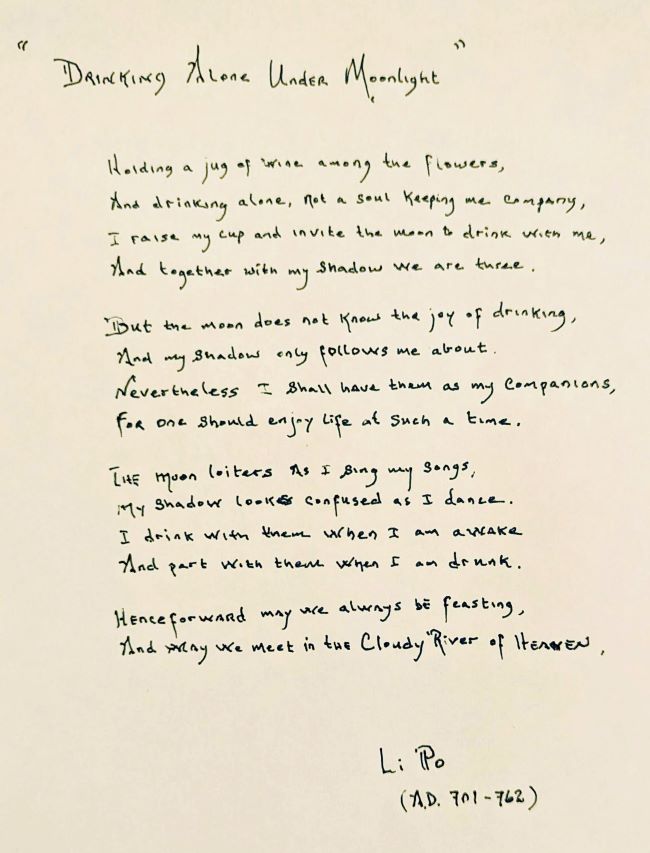 "Drinking Alone Under Moonlight"
Holding a jug of wine among the flowers,
And drinking alone, not a soul keeping me company,
I raise my cup and invite the moon to drink with me,
And together with my shadow we are three.
But the moon does not know the joy of drinking,
And my shadow only follows me about.
Nevertheless I shall have them as my companions,
For one should enjoy life at such a time.
The moon loiters as I sing my songs,
My shadow looks confused as I dance.
I drink with them when I am awake
And part with them when I am drunk.
Henceforward may we always be feasting,
And may we meet in the Cloudy River of Heaven.
Li Po
(A.D. 701-762)